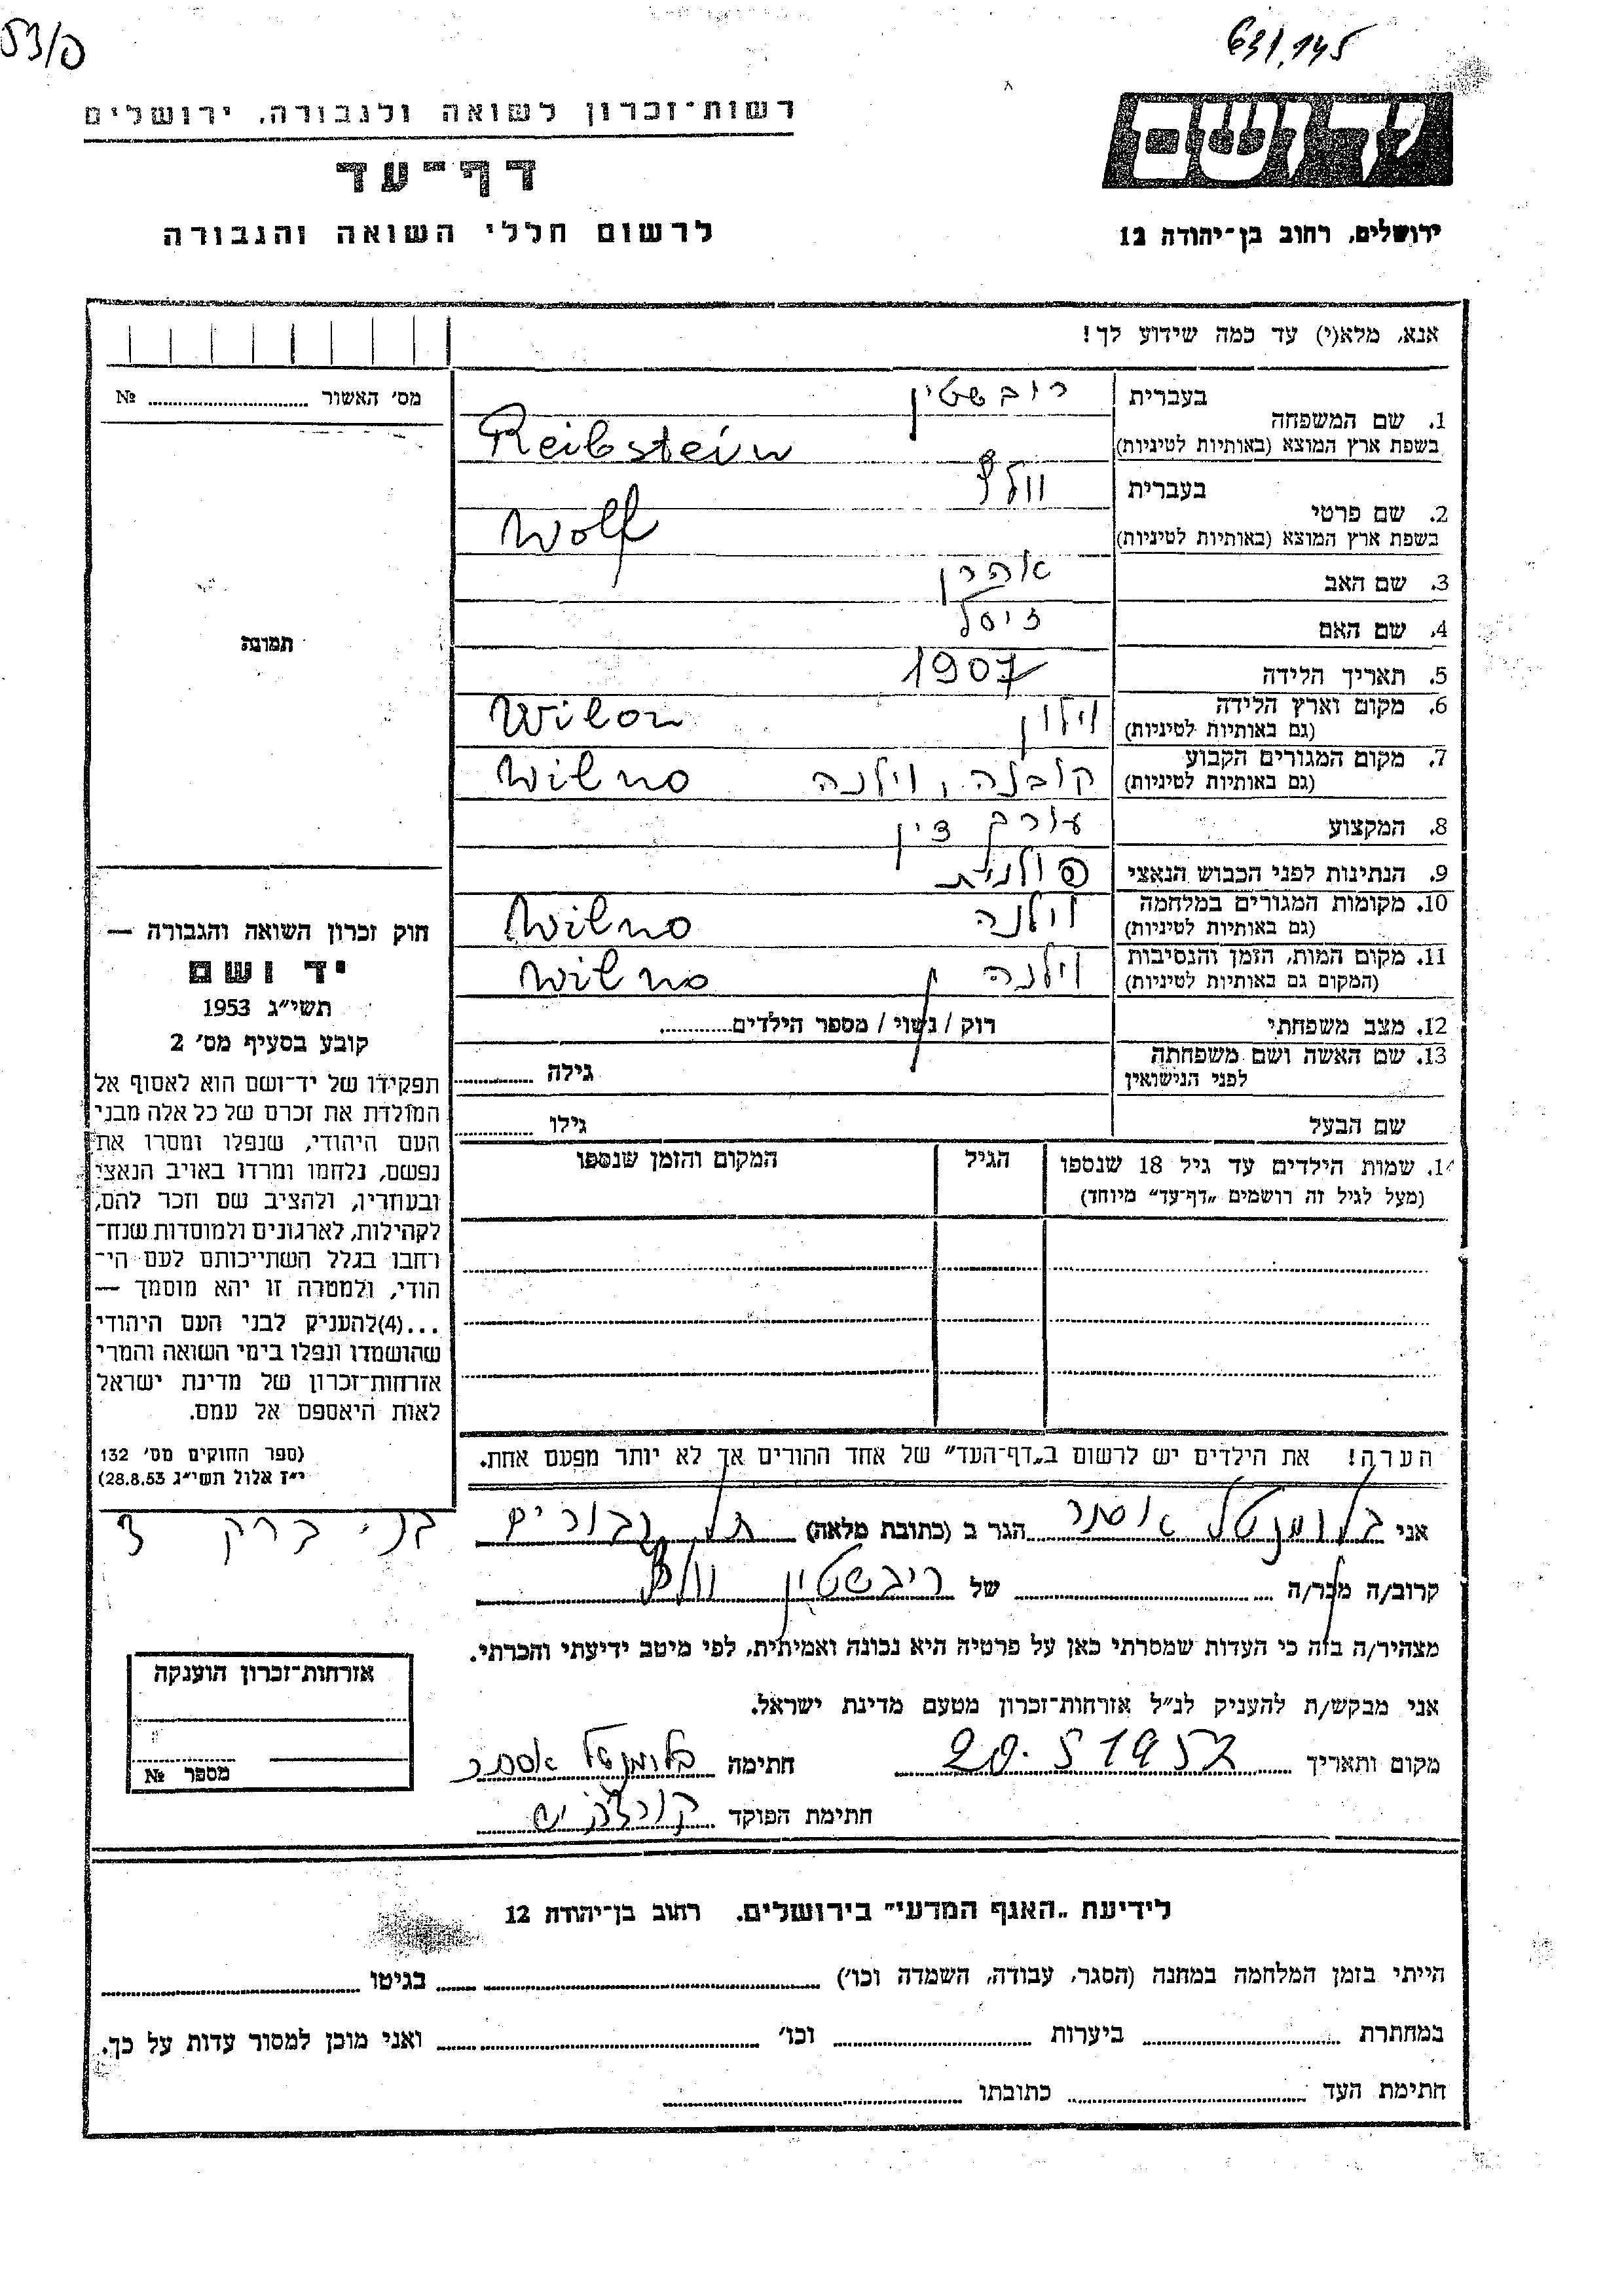 53/פ
631.145
רשות-זכרון לשואה ולגבורה, ירושלים
דף-עד
לרשום חללי השואה והגבורה
יד ושם
ירושלים, רחוב בן-יהודה 12
אנא, מלא(י) עד כמה שידוע לך!
מס׳ האשור № 
תמונה
חוק זכרון השואה והגבורה —
יד ושם
תשי״ג 1953
קובע בסעיף מס׳ 2
תפקידו של יד-ושם הוא לאסוף אל
המולדת את זכרם של כל אלה מבני
העם היהודי, שנפלו ומסרו את
נפשם, נלחמו ומרדו באויב הנאצי
ובעוזריו, ולהציב שם וזכר להם,
לקהילות, לארגונים ולמוסדות שנח-
רחבו בגלל השתייכותם לעם הי-
הודי, ולמטרה זו יהא מוסמך —
...(4)להעניק לבני העם היהודי
שהושמדו ונפלו בימי השואה והמרי
אזרחות-זכרון של מדינת ישראל
לאות היאספם אל עמם.
(ספר החוקים מס׳ 132
י״ז אלול תשי״ג 28.8.53)
1. שם המשפחה בעברית ריבשטין
בשפת ארץ המוצא (באותיות לטיניות) Reibstein
2. שם פרטי בעברית וולף
בשפת ארץ המוצא (באותיות לטיניות) Wolf
3. שם האב אהרן
4. שם האם זיסל
5. תאריך הלידה 1907
6. מקום וארץ הלידה (גם באותיות לטיניות) וילון Wilon
7. מקום המגורים הקבוע (גם באותיות לטיניות) קובנה, וילנה Wilno
8. המקצוע עורך דין
9. הנתינות לפני הכבוש הנאצי פולנית
10. מקומות המגורים במלחמה (גם באותיות לטיניות) וילנה Wilno
11. מקום המות, הזמן והנסיבות (המקום גם באותיות לטיניות) וילנה Wilno
12. מצב משפחתי רוק / נשוי / מספר הילדים
13. שם האשה ושם משפחתה לפני הנישואין גילה
שם הבעל גילו
14. שמות הילדים עד גיל 18 שנספו הגיל המקום והזמן שנספו
(מעל לגיל זה רושמים „דף-עד״ מיוחד)
הערה! את הילדים יש לרשום ב„דף-העד״ של אחד ההורים אך לא יותר מפעם אחת.
אני בלומנטל אסתר הגר ב (כתובת מלאה) תל גבורים בני ברק 3
קרוב/ה מכר/ה של ריבשטין וולף
מצהיר/ה בזה כי העדות שמסרתי כאן על פרטיה היא נכונה ואמיתית, לפי מיטב ידיעתי והכרתי.
אני מבקש/ת להעניק לנ״ל אזרחות-זכרון מטעם מדינת ישראל.
מקום ותאריך 20.5 1957 חתימה בלומנטל אסתר
חתימת הפוקד
אזרחות-זכרון הוענקה
מספר №
לידיעת „האגף המדעי״ בירושלים. רחוב בן-יהודה 12
הייתי בזמן המלחמה במחנה (הסגר, עבודה, השמדה וכו׳) בגיטו
במחתרת ביערות וכו׳ ואני מוכן למסור עדות על כך.
חתימת העד כתובתו